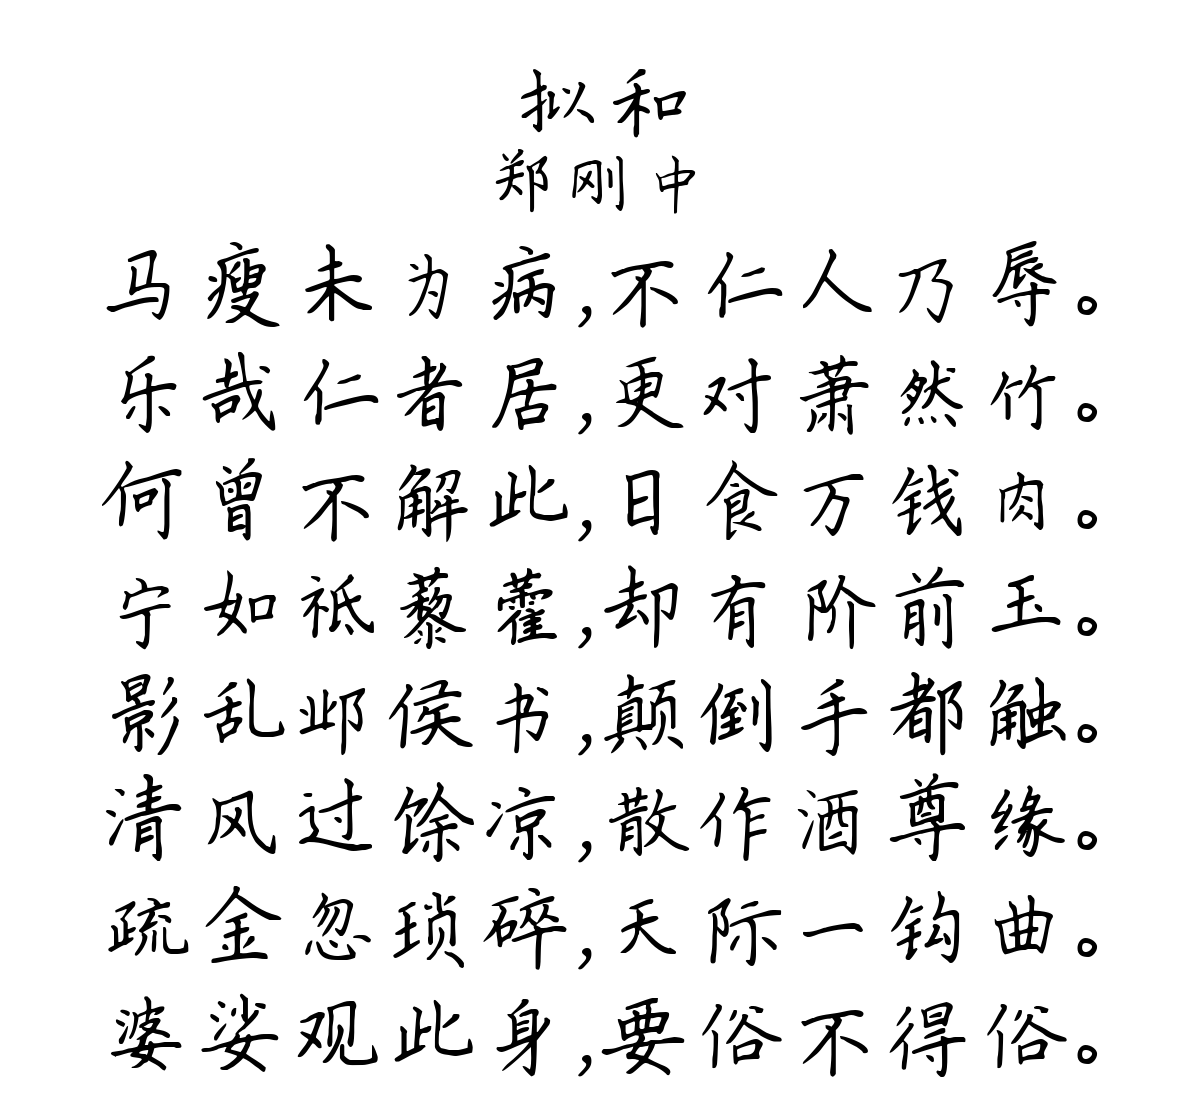 拟和
郑刚中
马瘦未为病,不仁人乃辱。
乐哉仁者居,更对萧然竹。
何曾不解此,日食万钱肉。
宁如祗藜藿,却有阶前玉。
影乱邺侯书,颠倒手都触。
清风过馀凉,散作酒尊缘。
疏金忽琐碎,天际一钩曲。
婆娑观此身,要俗不得俗。